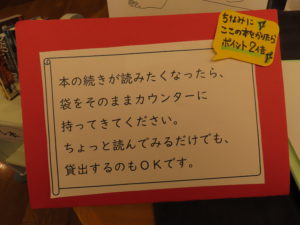 ちなみに
ここの本をかりたら
ポイント2倍
本の続きが読みたくなったら、
袋をそのままカウンターに
持ってきてください。
ちょっと読んでみるだけでも、
貸出するのもOKです。